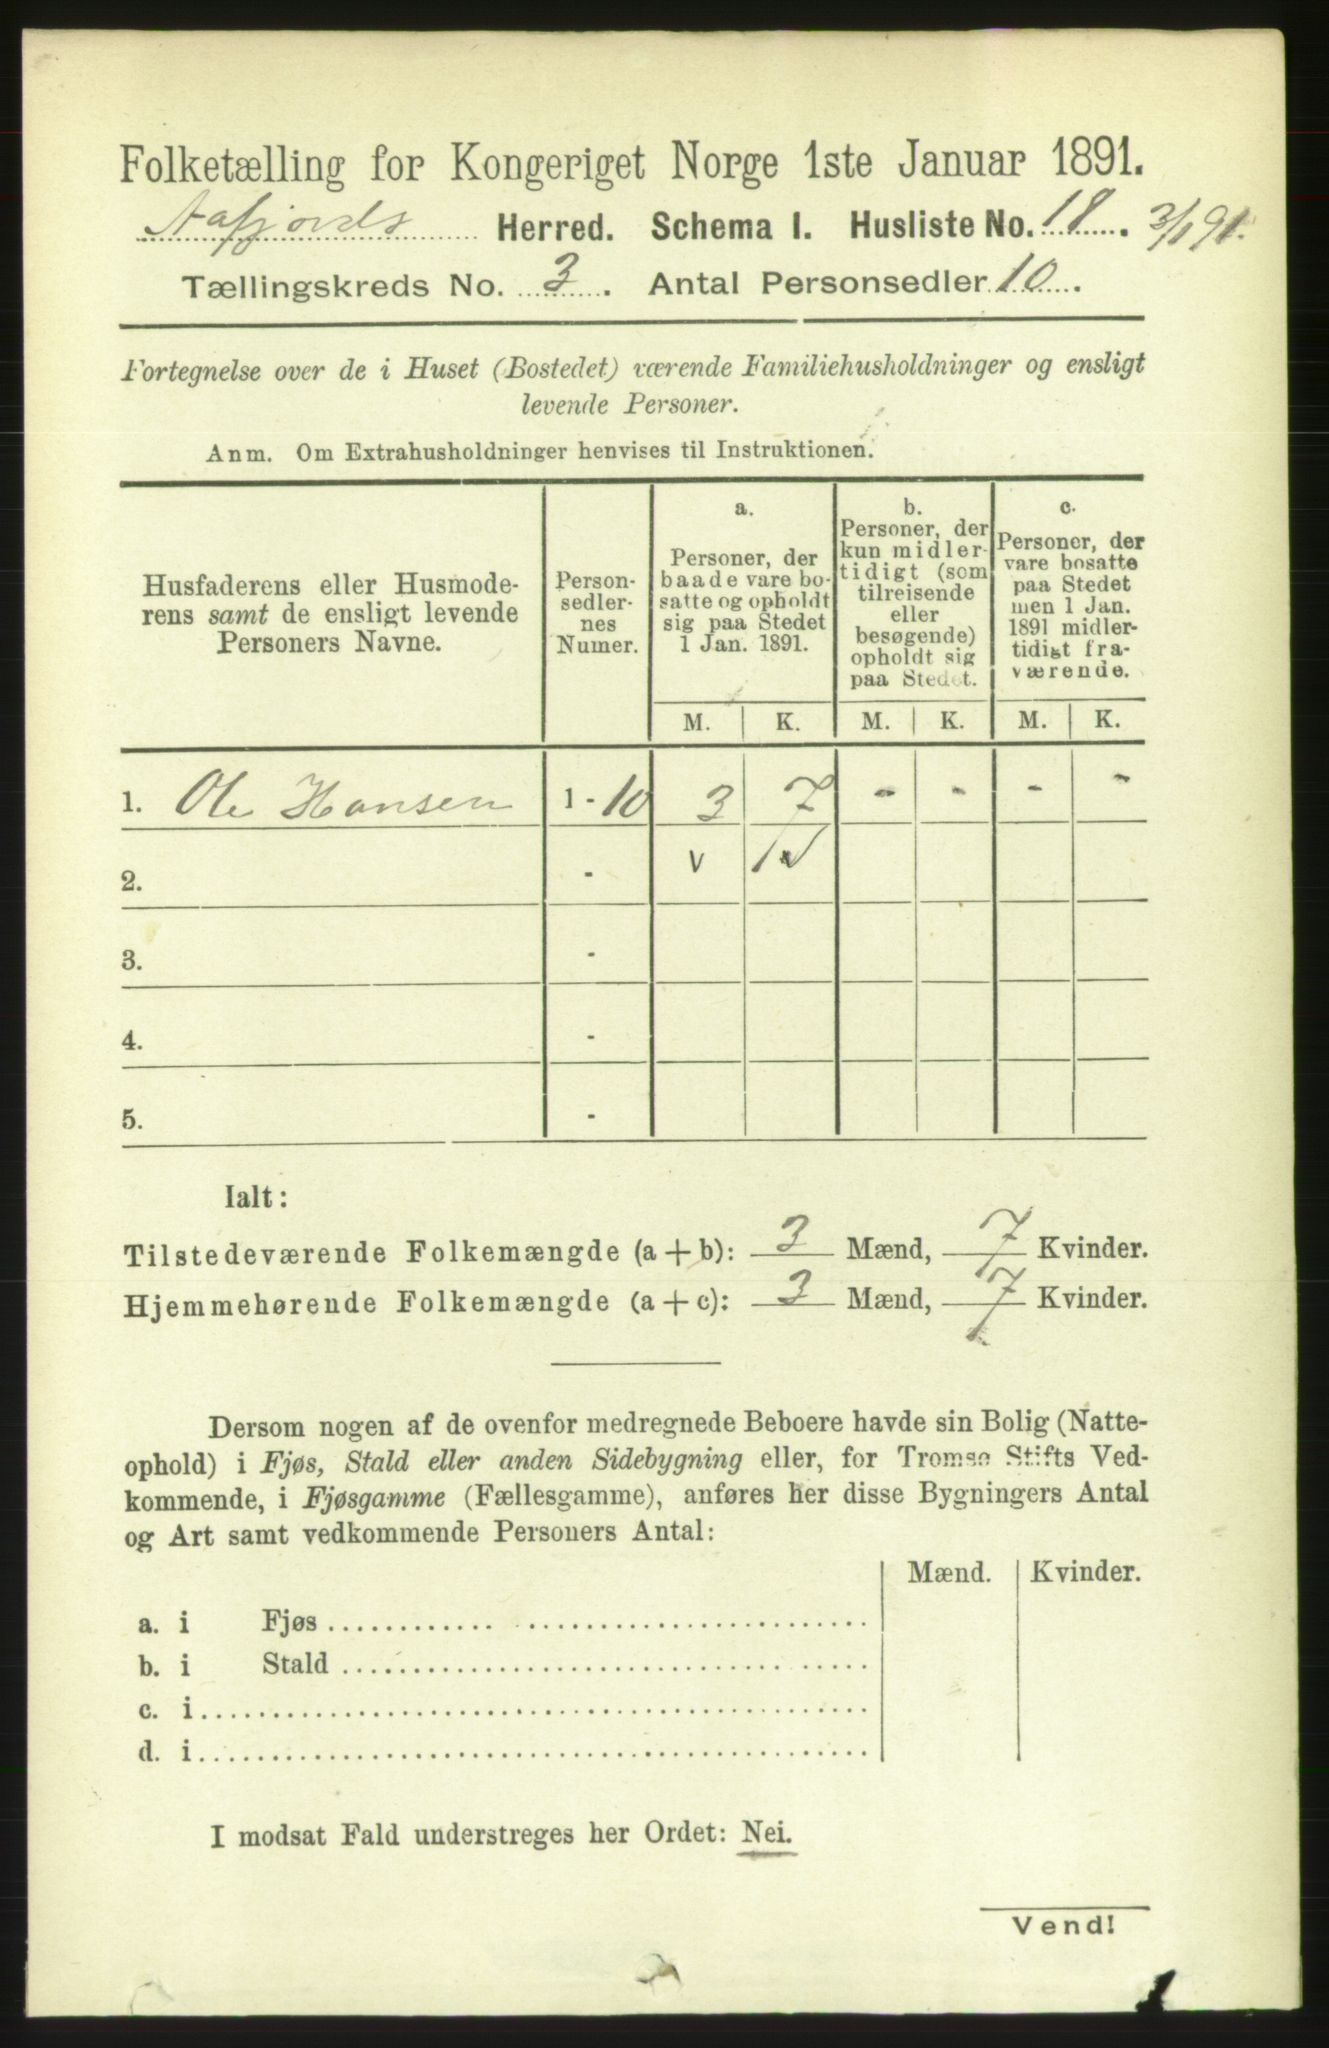 Folketælling for Kongeriget Norge 1ste Januar 1891.
Aafjords Herred. Schema I. Husliste No. 18. 3/1 91.
Tællingskreds No. 3. Antal Personsedler 10.
Fortegnelse over de i Huset (Bostedet) værende Familiehusholdninger og ensligt
levende Personer.
Anm. Om Extrahusholdninger henvises til Instruktionen.
Husfaderens eller Husmode-
rens samt de ensligt levende
Personers Navne.
Person-
sedler-
nes
Numer.
a.
Personer, der
baade vare bo-
satte og opholdt
sig paa Stedet
1 Jan. 1891.
b.
Personer, der
kun midler-
tidigt (som
tilreisende
eller
besøgende)
opholdt sig
paa Stedet.
c.
Personer, der
vare bosatte
paa Stedet
men 1 Jan.
1891 midler-
tidigt fra-
værende.
M. K. M. K. M. K.
1. Ole Hansen 1 - 10 3 7 - - - -
2. - v v
3. -
4. -
5. -
Ialt:
Tilstedeværende Folkemængde (a + b): 3 Mænd, 7 Kvinder.
Hjemmehørende Folkemængde (a + c): 3 Mænd, 7 Kvinder.
Dersom nogen af de ovenfor medregnede Beboere havde sin Bolig (Natte-
ophold) i Fjøs, Stald eller anden Sidebygning eller, for Tromsø Stifts Ved-
kommende, i Fjøsgamme (Fællesgamme), anføres her disse Bygningers Antal
og Art samt vedkommende Personers Antal:
Mænd. Kvinder.
a. i Fjøs
b. i Stald
c. i
d. i
I modsat Fald understreges her Ordet: Nei.
Vend!